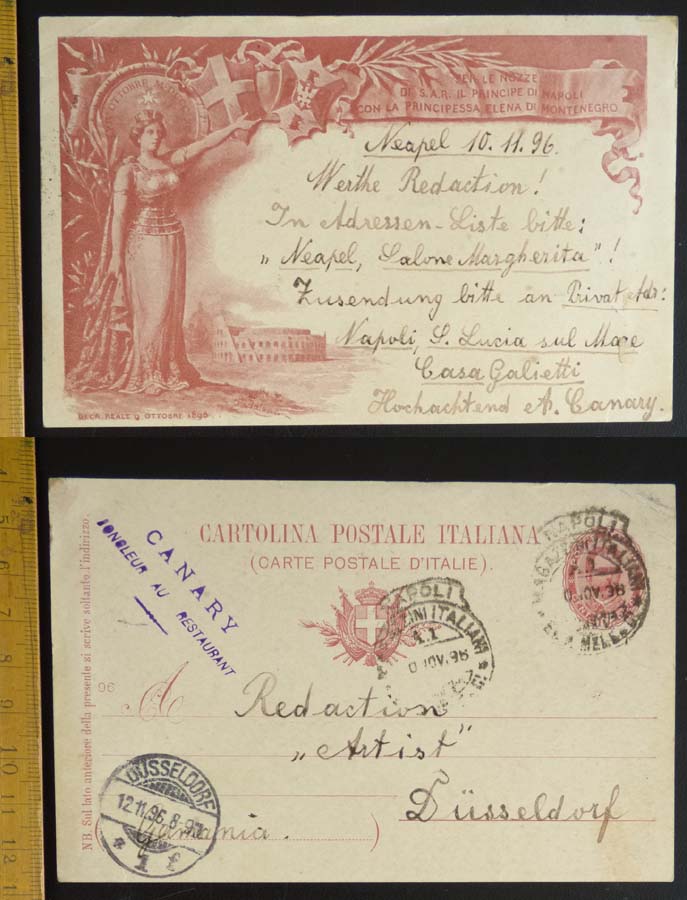 PER LE NOZZE
DI S.A.R. IL PRINCIPE DI NAPOLI
CON LA PRINCIPESSA ELENA DI MONTENEGRO
OTTOBRE
Neapel 10.11.96.
Werthe Redaction!
In Adressen-Liste bitte:
„Neapel, Salone Margherita"!
Zusendung bitte an Privat Adr:
Napoli, S. Lucia sul Mare
Casa Galietti
Hochachtend A. Canary.
DECR. REALE 9 OTTOBRE 1896
CARTOLINA POSTALE ITALIANA
(CARTE POSTALE D'ITALIE).
CANARY
JONGLEUR AU RESTAURANT
NAPOLI
MAGAZZINI ITALIANI
NAPOLI
ITALIANI
NB. Sul lato anteriore della presente si scrive soltanto l'indirizzo.
96
A
Redaction
„Artist"
Düsseldorf
Germania.
DÜSSELDORF
12.11.96.8-9
1 f
4 5 6 7 8 9 10 11 12